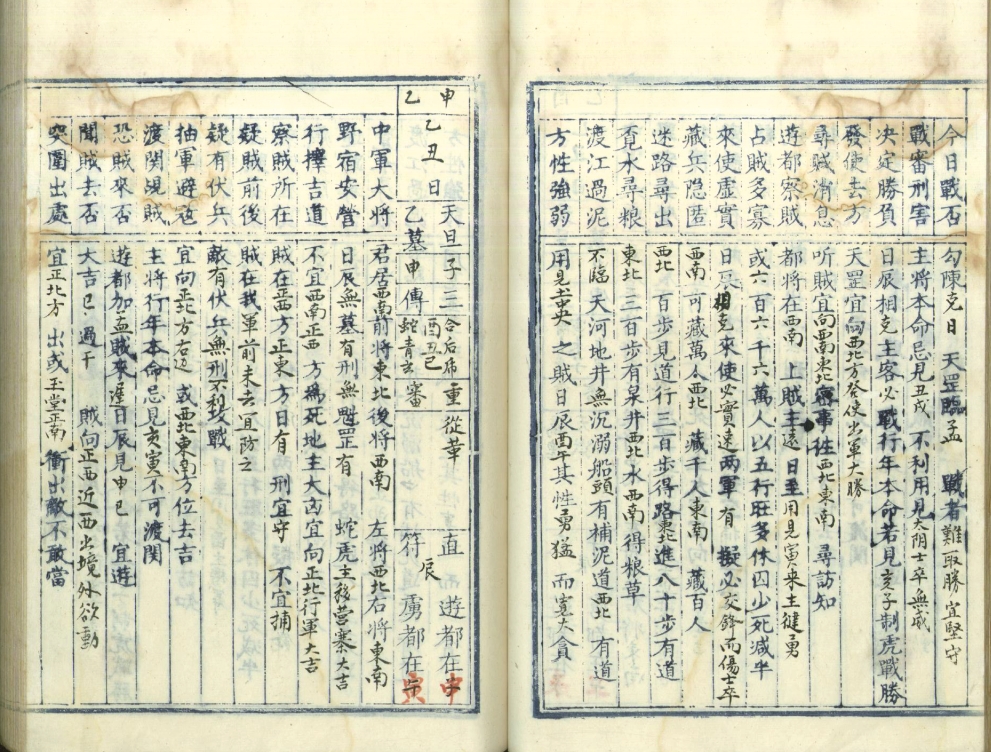 今日戰否 勾陳克日 天罡臨孟 戰者難取勝 宜堅守
戰審刑害 主將本命忌見丑戌 不利用見太阴士卒無威
决定勝負 日辰相克主客必戰行年本命若見亥子制虎戰勝
發使去方 天罡宜向西北方發使出軍大勝
尋賊消息 听賊宜向西南東北 往西北東南 尋訪知
遊都察賊 都將在西南 上賊主遠 日至用見寅来主健勇
占賊多寡 或六百六千六萬人以五行旺多休囚少死減半
來使虛實 日辰相克來使必實遠两軍有 擬必交鋒而傷士卒
藏兵隐匿 西南 可藏萬人西北 藏千人東南 藏百人
迷路尋出 西北 百步見道行三百步得路東北進八十步有道
覔水尋粮 東北 三百步有泉井西北水西南得粮草
渡江過泥 不臨天河地井無沉溺船頭有補泥道西北 有道
方性強弱 用見 央之賊日辰酉午其性勇猛而寬大貪
申 乙
乙丑日 天旦子三 合后虎 重從革 直 遊都在申
乙墓申傳 酉丑巳 蛇青玄 審 辰 符虜都在寅
中軍大將 君居西南前將東北後將西南 左將西北右將東南
野宿安營 日辰無墓有刑無魁罡有 蛇虎主移营寨大吉
行擇吉道 不宜西南正西 方為死地主大凶宜向正北行軍大吉
察賊所在 賊在正西方正東方日有刑宜守 不宜捕
疑賊前後 賊在我軍前未去宜防之
疑有伏兵 敵有伏兵無刑不利攻戰
抽軍避寇 宜向正北方右边 或西北東南方位去吉
渡関覘賊 主將行年本命忌見亥寅不可渡関
恐賊來否 遊都加孟賊來遲日辰見申巳 宜遊
聞賊去否 大吉巳過干 賊向正西近西出境外欲動
突圍出處 宜正北方 出或玉堂正南 衝出敵不敢當